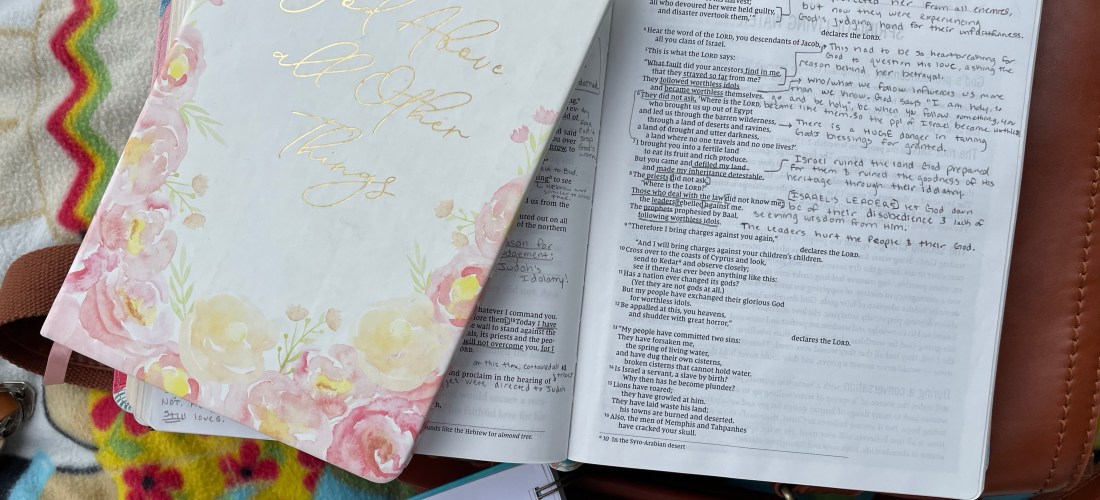 God Above
all Other
Things
all who devoured her were held guilty,
and disaster overtook them,'"
declares the LORD.
her from all enemies,
but now they were experiencing
God's judging hand for their unfaithfulness.
4 Hear the word of the LORD, you descendants of Jacob,
all you clans of Israel.
5 This is what the LORD says:
"What fault did your ancestors find in me,
that they strayed so far from me?
They followed worthless idols
and became worthless themselves.
6 They did not ask, 'Where is the LORD,
who brought us up out of Egypt
and led us through the barren wilderness,
through a land of deserts and ravines,
a land of drought and utter darkness,
a land where no one travels and no one lives?'
7 I brought you into a fertile land
to eat its fruit and rich produce.
But you came and defiled my land
and made my inheritance detestable.
8 The priests did not ask,
'Where is the LORD?'
Those who deal with the law did not know me;
the leaders rebelled against me.
The prophets prophesied by Baal,
following worthless idols.
9 "Therefore I bring charges against you again,"
declares the LORD.
"And I will bring charges against your children's children.
10 Cross over to the coasts of Cyprus and look,
send to Kedar* and observe closely;
see if there has ever been anything like this:
11 Has a nation ever changed its gods?
(Yet they are not gods at all.)
But my people have exchanged their glorious God
for worthless idols.
12 Be appalled at this, you heavens,
and shudder with great horror,"
declares the LORD.
13 "My people have committed two sins:
They have forsaken me,
the spring of living water,
and have dug their own cisterns,
broken cisterns that cannot hold water.
14 Is Israel a servant, a slave by birth?
Why then has he become plunder?
15 Lions have roared;
they have growled at him.
They have laid waste his land;
his towns are burned and deserted.
16 Also, the men of Memphis and Tahpanhes
have cracked your skull.
a 10 In the Syro-Arabian desert
This had to be so heartbreaking for
God to question His love, asking the
reason behind her betrayal.
Who/what we follow influences us more
than we know. God says "I am holy, so
go and be holy", bc when you follow something, you
become like them. so the ppl of Israel became worthless
There is a HUGE danger in taking
God's blessings for granted.
Israel ruined the land God prepared
for them & ruined the goodness of His
heritage through their idolatry.
ISRAEL'S LEADERS let God down
bc of their disobedience & lack of
seeming wisdom from Him.
The leaders hurt the people & their God.
to see
d us from the
ured out on all
of the northern
Reason for
Judgement:
Judah's
Idolatry!
hatever I command you.
18 Today I have
e wall to stand against the
als, its priests and the peo-
will not overcome you, for I
and proclaim in the hearing of
were directed to Judah
sounds like the Hebrew for almond tree.
NOT.
STILL loves.